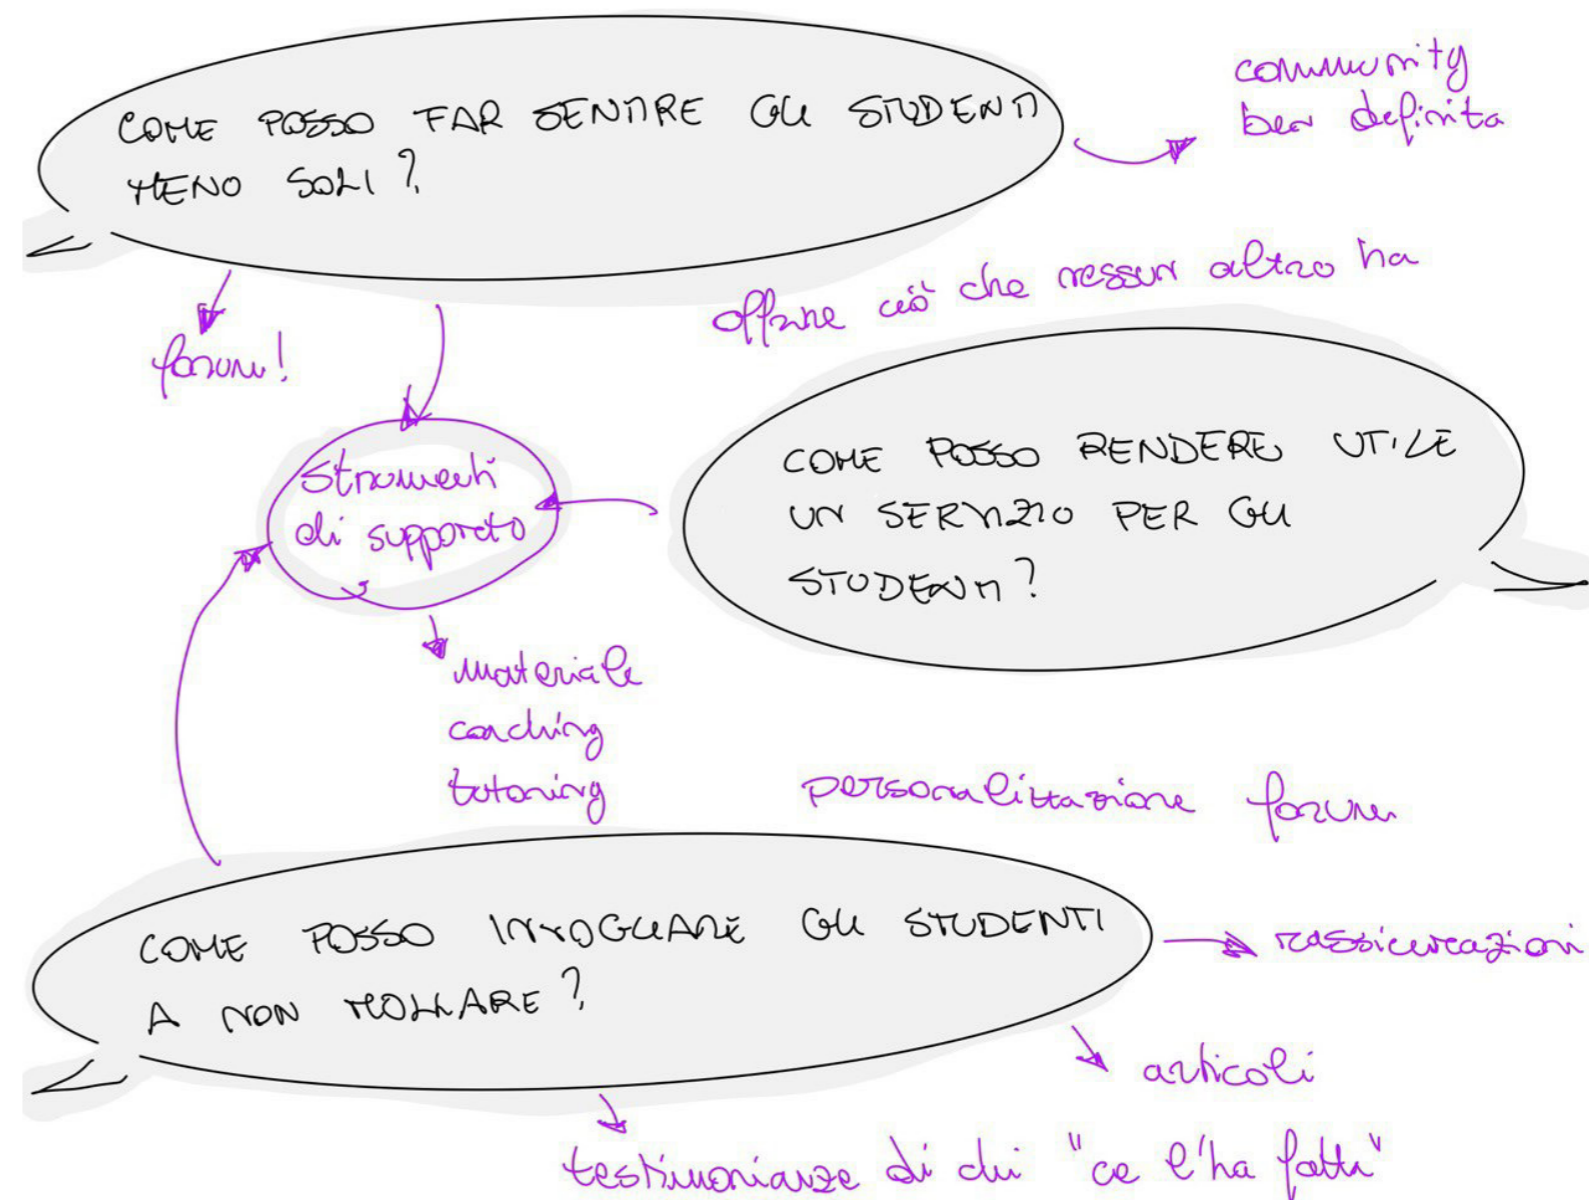 COME POSSO FAR SENTIRE GLI STUDENTI
MENO SOLI?
community
ben definita
forum!
offrire ciò che nessun altro ha
strumenti
di supporto
COME POSSO RENDERE UTILE
UN SERVIZIO PER GLI
STUDENTI?
materiale
coaching
tutoring
personalizzazione forum
COME POSSO INVOGLIARE GLI STUDENTI
A NON MOLLARE?
rassicurazioni
articoli
testimonianze di chi "ce l'ha fatta"